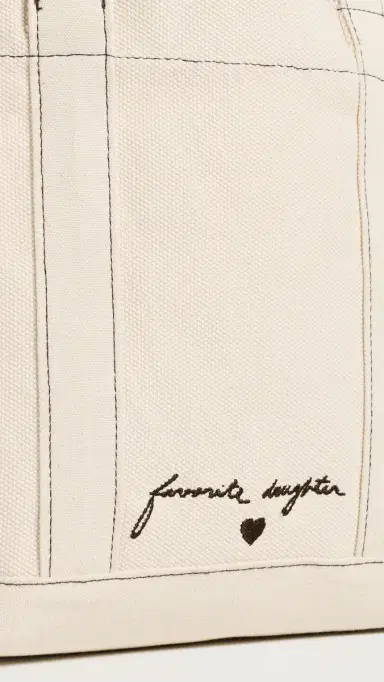 favorite daughter